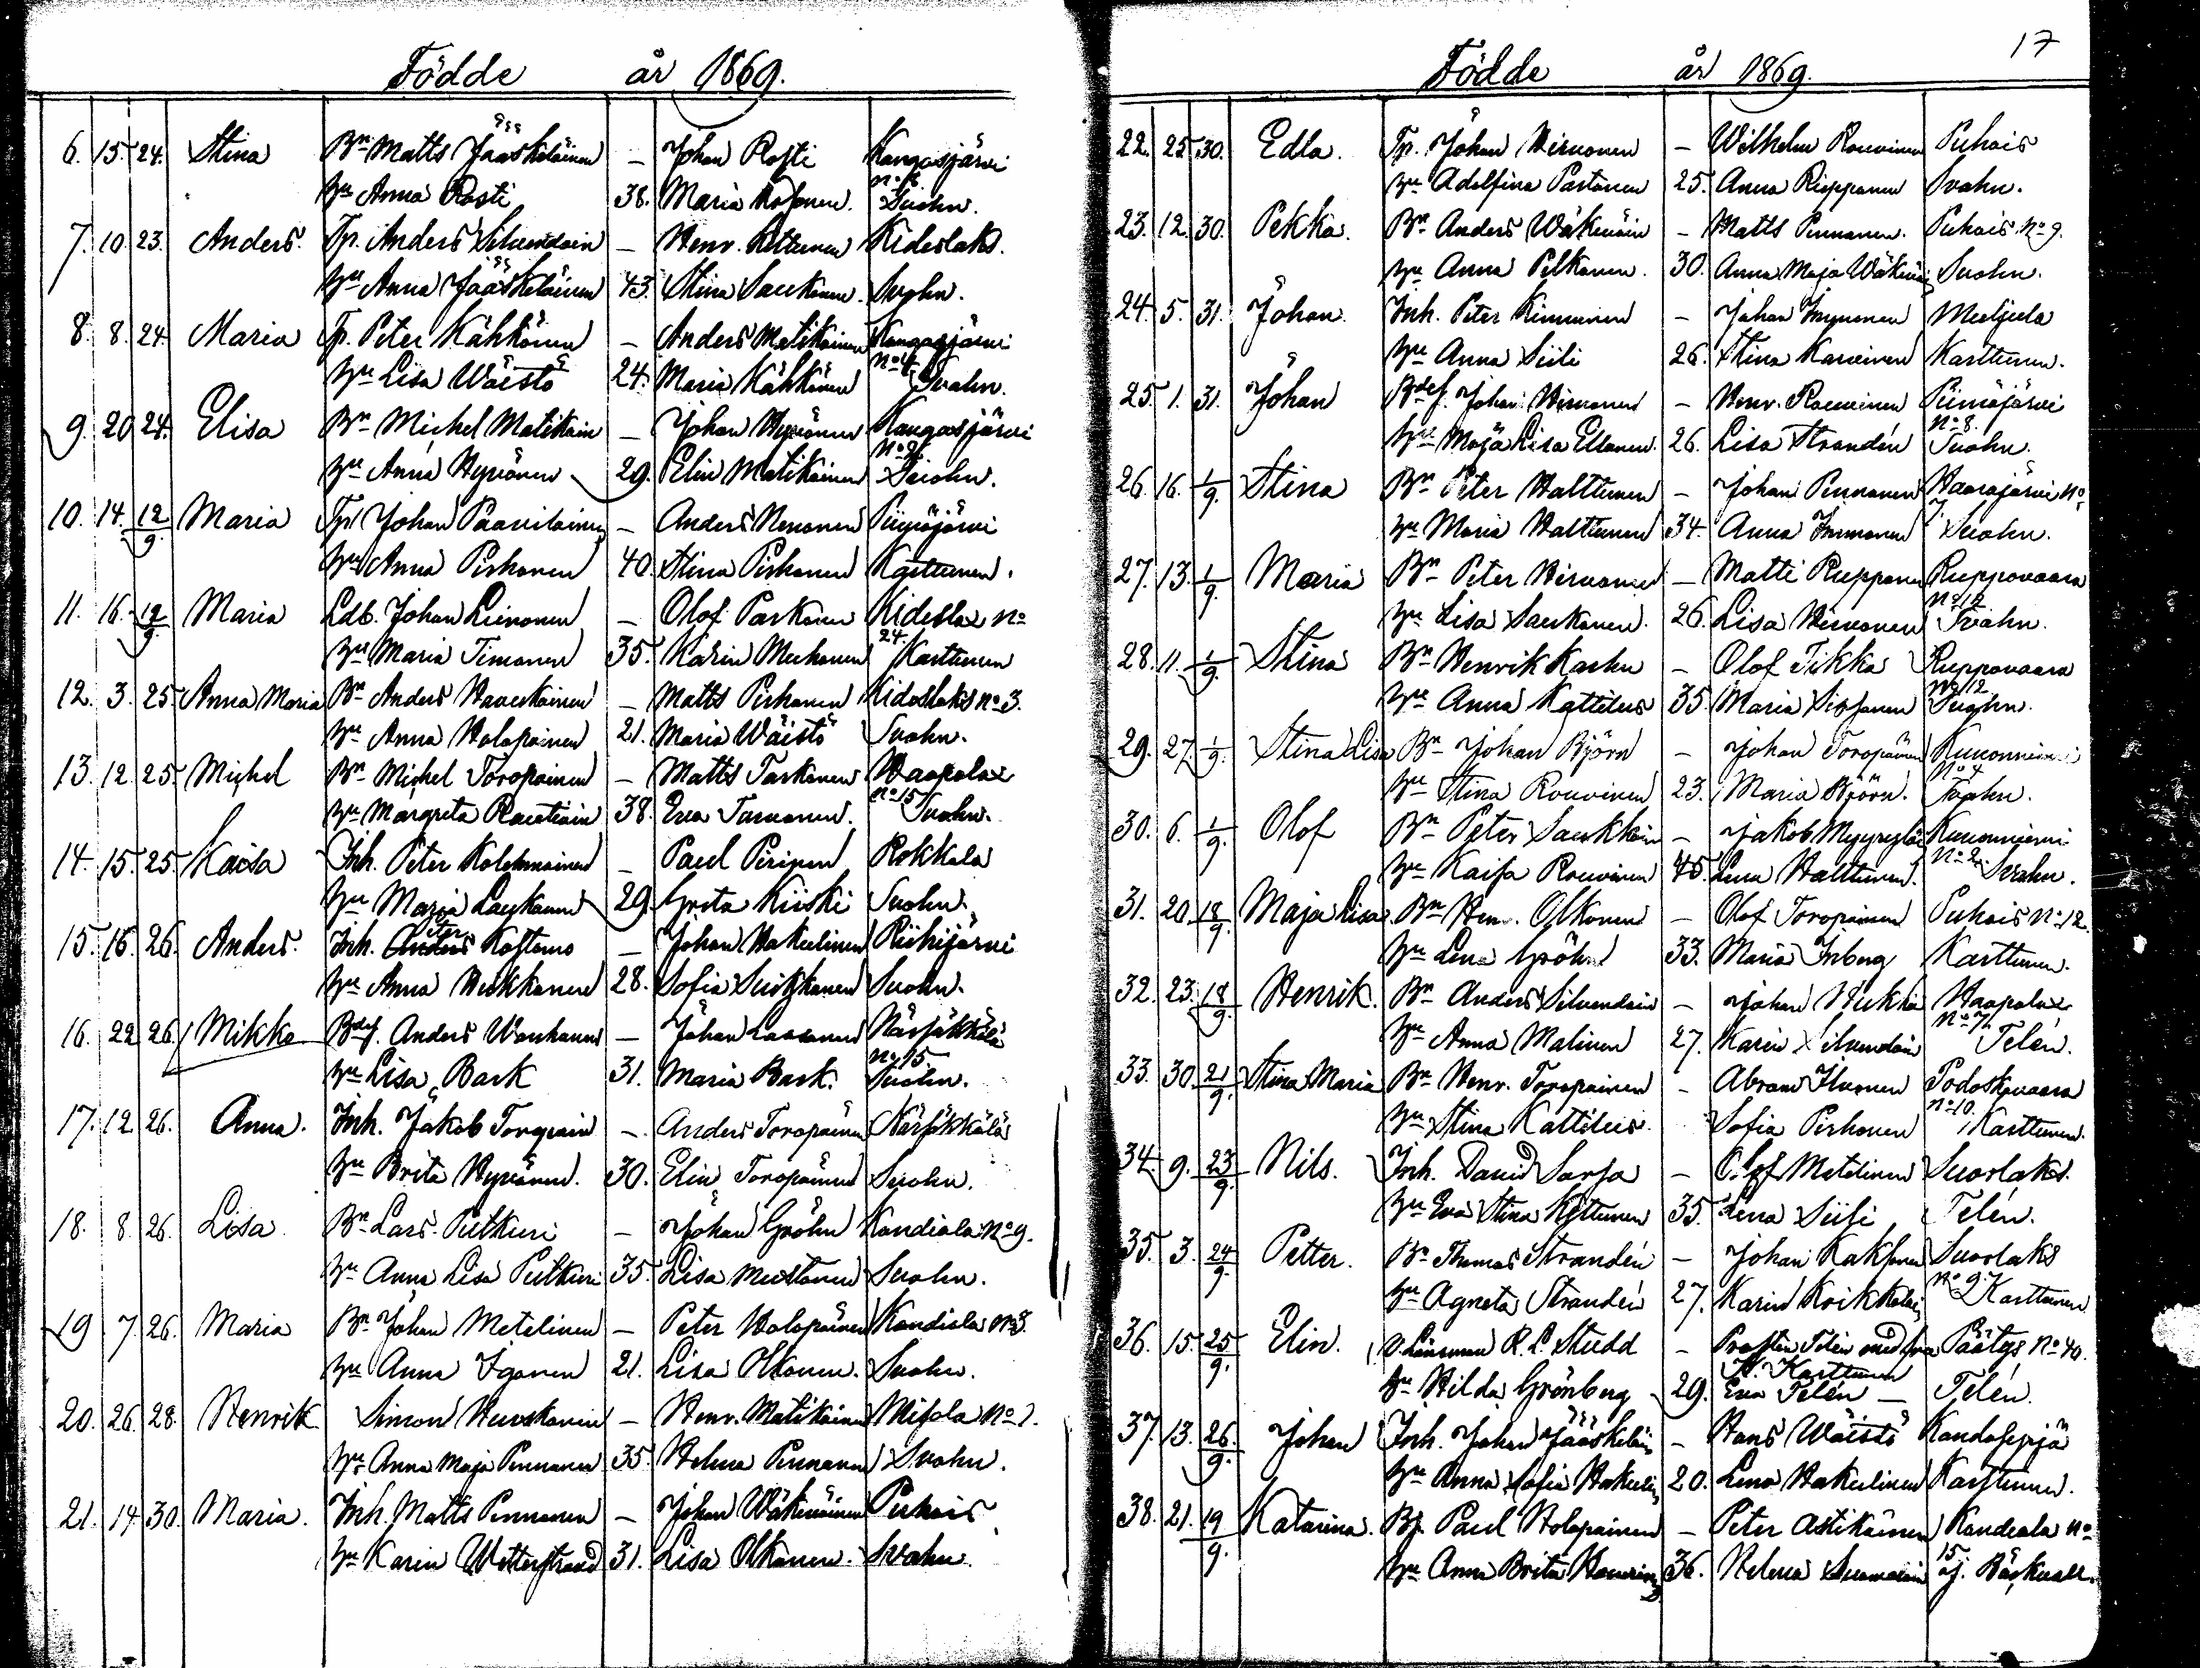 Födde år 1869.
6. 15. 24. Stina Bn Matts Jääskeläinen – Johan Rosti Kangasjärvi
hu Anna Rosti 38. Maria Svahn.
7. 10 23. Anders. Tp. Anders Silvendoin – Henr. Kettunen Kideslaks.
hu Anna Jääskeläinen 43. Stina Saukonen. Svahn.
8. 8. 24. Maria Tp. Peter Kähkönen – Anders Matikainen Kangasjärvi
hu Lisa Wäistö 24. Maria Kähkönen No 4 Svahn.
9. 20 24. Elisa Bn Michel Matikain – Johan Hyvönen Kangasjärvi
hu Anna Hyvönen 29. Elin Matikainen Svahn.
10. 14. 12/9. Maria Tp. Johan Paavilainen – Anders Nenonen Piimäjärvi
hu Anna Pirhonen 40. Stina Pirhonen Karttunen.
11. 16. 12/9. Maria Ldb. Johan Leinonen – Olof Parkonen Kideslax No
hu Maria Timonen 35. Karin Muhonen 24. Karttunen
12. 3. 25. Anna Maria Bn Anders Haverinen – Matts Pirhonen Kideslaks No 3.
hu Anna Holopainen 21. Maria Wäistö Svahn.
13. 12 25. Michel Bn Michel Toropainen – Matts Tarkonen Haapalax
hu Margreta Rautiain 38. Eva No 15 Svahn.
14. 15. 25. Kaisa Inh. Peter Kolehmainen – Paul Piripen Rokkala
hu Maria Laukkanen 29. Greta Kiiski Svahn.
15. 16. 26. Anders. Inh. Anders Kostamo – Johan Hakulinen Riihijärvi
hu Anna Heikkonen 28. Sofia Suikkanen Svahn.
16. 22 26. Mikko Bdsf. Anders Wanhanen – Johan Lassanen Närsäkkälä
hu Lisa Bark 31. Maria Bark. No 15 Svahn.
17. 12 26. Anna. Inh. Jakob Toropain – Anders Toropainen Närsäkkälä
hu Brita Hyvönen. 30. Elin Toropainen Svahn.
18. 8. 26. Lisa Bn Lars Putkuri – Johan Gröhn Kandiala No 9.
hu Anna Lisa Putkuri 35. Lisa Mustonen Svahn.
19 7 26. Maria Bn Johan Metelinen – Peter Holopainen Kandiala No 3.
hu Anna Igonen 21. Lisa Olkonen. Svahn.
20. 26. 28. Henrik Simon Hurskainen – Henr. Matikainen Misola No 1.
hu Anna Maja Pennanen 35. Helena Pennanen Svahn.
21. 14. 30. Maria. Inh. Matts Pennanen – Johan Wäkeväinen Puhois
hu Karin Wetterstrand 31. Lisa Olkonen. Svahn.
17
Födde år 1869.
22. 25. 30. Edla. Tp. Johan Hirvonen – Wilhelm Rouvinen Puhois
hu Adolfina Partanen 25. Anna Rieppanen Svahn.
23. 12. 30. Pekka. Bn Anders Wäkeväin – Matts Pennanen. Puhois No 9.
hu Anna Pelkonen. 30. Anna Maja Wäkevä Svahn.
24. 5. 31. Johan. Inh. Peter Kinnunen – Johan Immonen Muljula
hu Anna Siili 26. Stina Karvinen Karttunen.
25. 1. 31. Johan Bdsf. Johan Hirvonen – Henr. Rouvinen Piimäjärvi
hu Maja Lisa Ellonen. 26. Lisa Strandén No 8. Svahn.
26. 16. 1/9. Stina Bn Peter Halttunen – Johan Pennanen Haarajärvi No
hu Maria Halttunen 34. Anna Immonen 7 Svahn.
27. 13. 1/9. Maria Bn Peter Hirvonen – Matti Ruppone Ruppovaara
hu Lisa Saukonen. 26. Lisa Hirvonen No 12 Svahn.
28. 11. 1/9. Stina Bn Henrik Karhu – Olof Tikka Ruppovaara
hu Anna Kattilus 35. Maria No 12 Svahn.
29. 27. 1/9. Stina Lisa Bn Johan Björn – Johan Toropainen Kuuonniemi
hu Stina Rouvinen 23. Maria Björn. No 4 Svahn.
30. 6. 1/9. Olof Bn Peter Saukkoin – Jakob Kuuonniemi
hu Kaisa Rouvinen 45. Lena Halttunen. No 2. Svahn.
31. 20. 18/9. Maja Lisa Bn Henr. Olkonen – Olof Toropainen Puhois No 12.
hu Lena Gröhn 33. Maria Inberg Karttunen.
32. 23. 18/9. Henrik. Bn Anders Silvendoin – Johan Hukka Haapalax
hu Anna Malinen 27. Karin Silvendoin No 7. Telén.
33. 30. 21/9. Stina Maria Bn Henr. Toropainen – Abram Ilvonen Podoskavaara
hu Stina Kattilus Sofia Pirhonen No 10. Karttunen.
34. 9. 23/9. Nils. Inh. David Sarja – Olof Metelinen Suorlaks.
hu Eva Stina Kettunen 35. Lena Siili Telén.
35. 3. 24/9. Petter. Bn Thomas Strandén – Johan Kakkonen Suorlaks
hu Agneta Strandén 27. Karin Koikkala No 9. Karttunen
36. 15. 25/9. Elin. V. Länsman R. L. Studd – Prosten Telén med fru Päätys No 40.
K. Karttunen
hu Hilda Grönberg 29. Eva Telén – Telén.
37. 13. 26/9. Johan Inh. Johan Jääskeläin – Hans Wäistö
hu Anna Sofia Hakulin 20. Lena Hakulinen Karttunen.
38. 21. 19/9. Katarina. Bf. Paul Holopainen – Peter Astikainen Kandiala No
hu Anna Brita 36. Helena 15 af. Bäckvall.